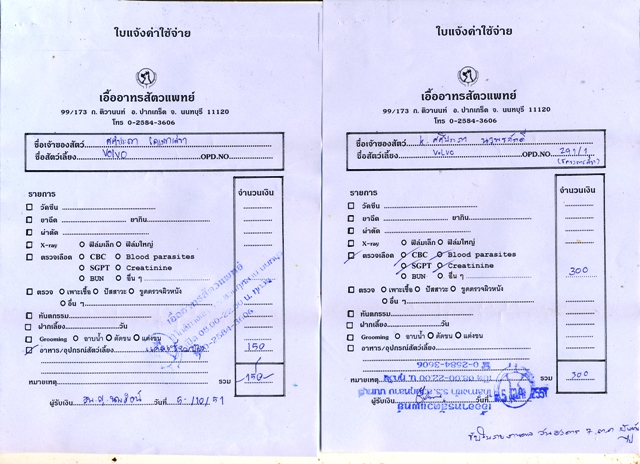 ใบแจ้งค่าใช้จ่าย
เอื้ออาทรสัตวแพทย์
99/173 ถ. ติวานนท์ อ. ปากเกร็ด จ. นนทบุรี 11120
โทร 0-2584-3606
ชื่อเจ้าของสัตว์
ชื่อสัตว์เลี้ยง Volvo OPD.NO.
รายการ จำนวนเงิน
วัคซีน
ยาฉีด ยากิน
ผ่าตัด
X-ray ฟิล์มเล็ก ฟิล์มใหญ่
ตรวจเลือด CBC Blood parasites
SGPT Creatinine
BUN อื่น ๆ
ตรวจ เพาะเชื้อ ปัสสาวะ ขูดตรวจผิวหนัง
อื่น ๆ
ทันตกรรม
ฝากเลี้ยง วัน
Grooming อาบน้ำ ตัดขน แต่งขน
อาหาร/อุปกรณ์สัตว์เลี้ยง 150
หมายเหตุ รวม 150
ผู้รับเงิน วันที่ 5/10/51
ใบแจ้งค่าใช้จ่าย
เอื้ออาทรสัตวแพทย์
99/173 ถ. ติวานนท์ อ. ปากเกร็ด จ. นนทบุรี 11120
โทร 0-2584-3606
ชื่อเจ้าของสัตว์
ชื่อสัตว์เลี้ยง VOLVO OPD.NO. 291/1
รายการ จำนวนเงิน
วัคซีน
ยาฉีด ยากิน
ผ่าตัด
X-ray ฟิล์มเล็ก ฟิล์มใหญ่
ตรวจเลือด CBC Blood parasites
SGPT Creatinine
BUN อื่น ๆ 300
ตรวจ เพาะเชื้อ ปัสสาวะ ขูดตรวจผิวหนัง
อื่น ๆ
ทันตกรรม
ฝากเลี้ยง วัน
Grooming อาบน้ำ ตัดขน แต่งขน
อาหาร/อุปกรณ์สัตว์เลี้ยง
หมายเหตุ รวม 300
ผู้รับเงิน วันที่